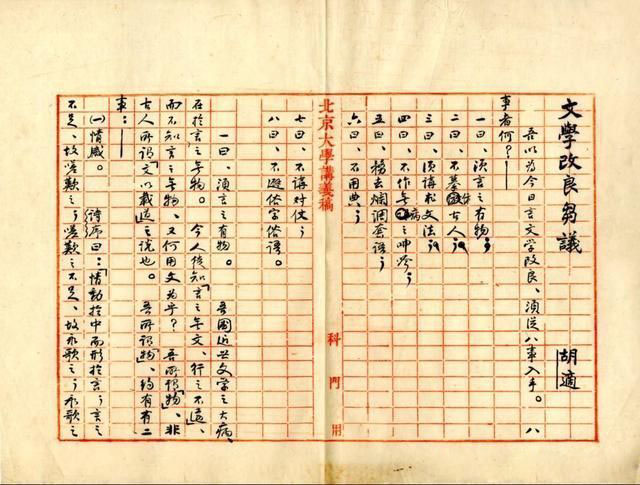 文學改良芻議 胡適
吾以为今日言文学改良、須從八事入手。八
事者何?——
一曰、須言之有物;
二曰、不摹仿古人;
三曰、須講求文法;
四曰、不作无病之呻吟;
五曰、務去爛調套語;
六曰、不用典;
北京大學講義稿 科 門 用
七曰、不講对仗;
八曰、不避俗字俗語。
一曰、須言之有物。 吾國近世文学之大病、
在於言之无物。 今人徒知「言之无文、行之不遠」、
而不知言之无物、又何用文为乎? 吾所謂「物」、非
古人所謂「文以載道」之說也。 吾所謂「物」、約有二
事:——
(一)情感。 詩序曰:「情動於中而形於言;言之
不足、故嗟歎之;嗟歎之不足、故永歌之;永歌之